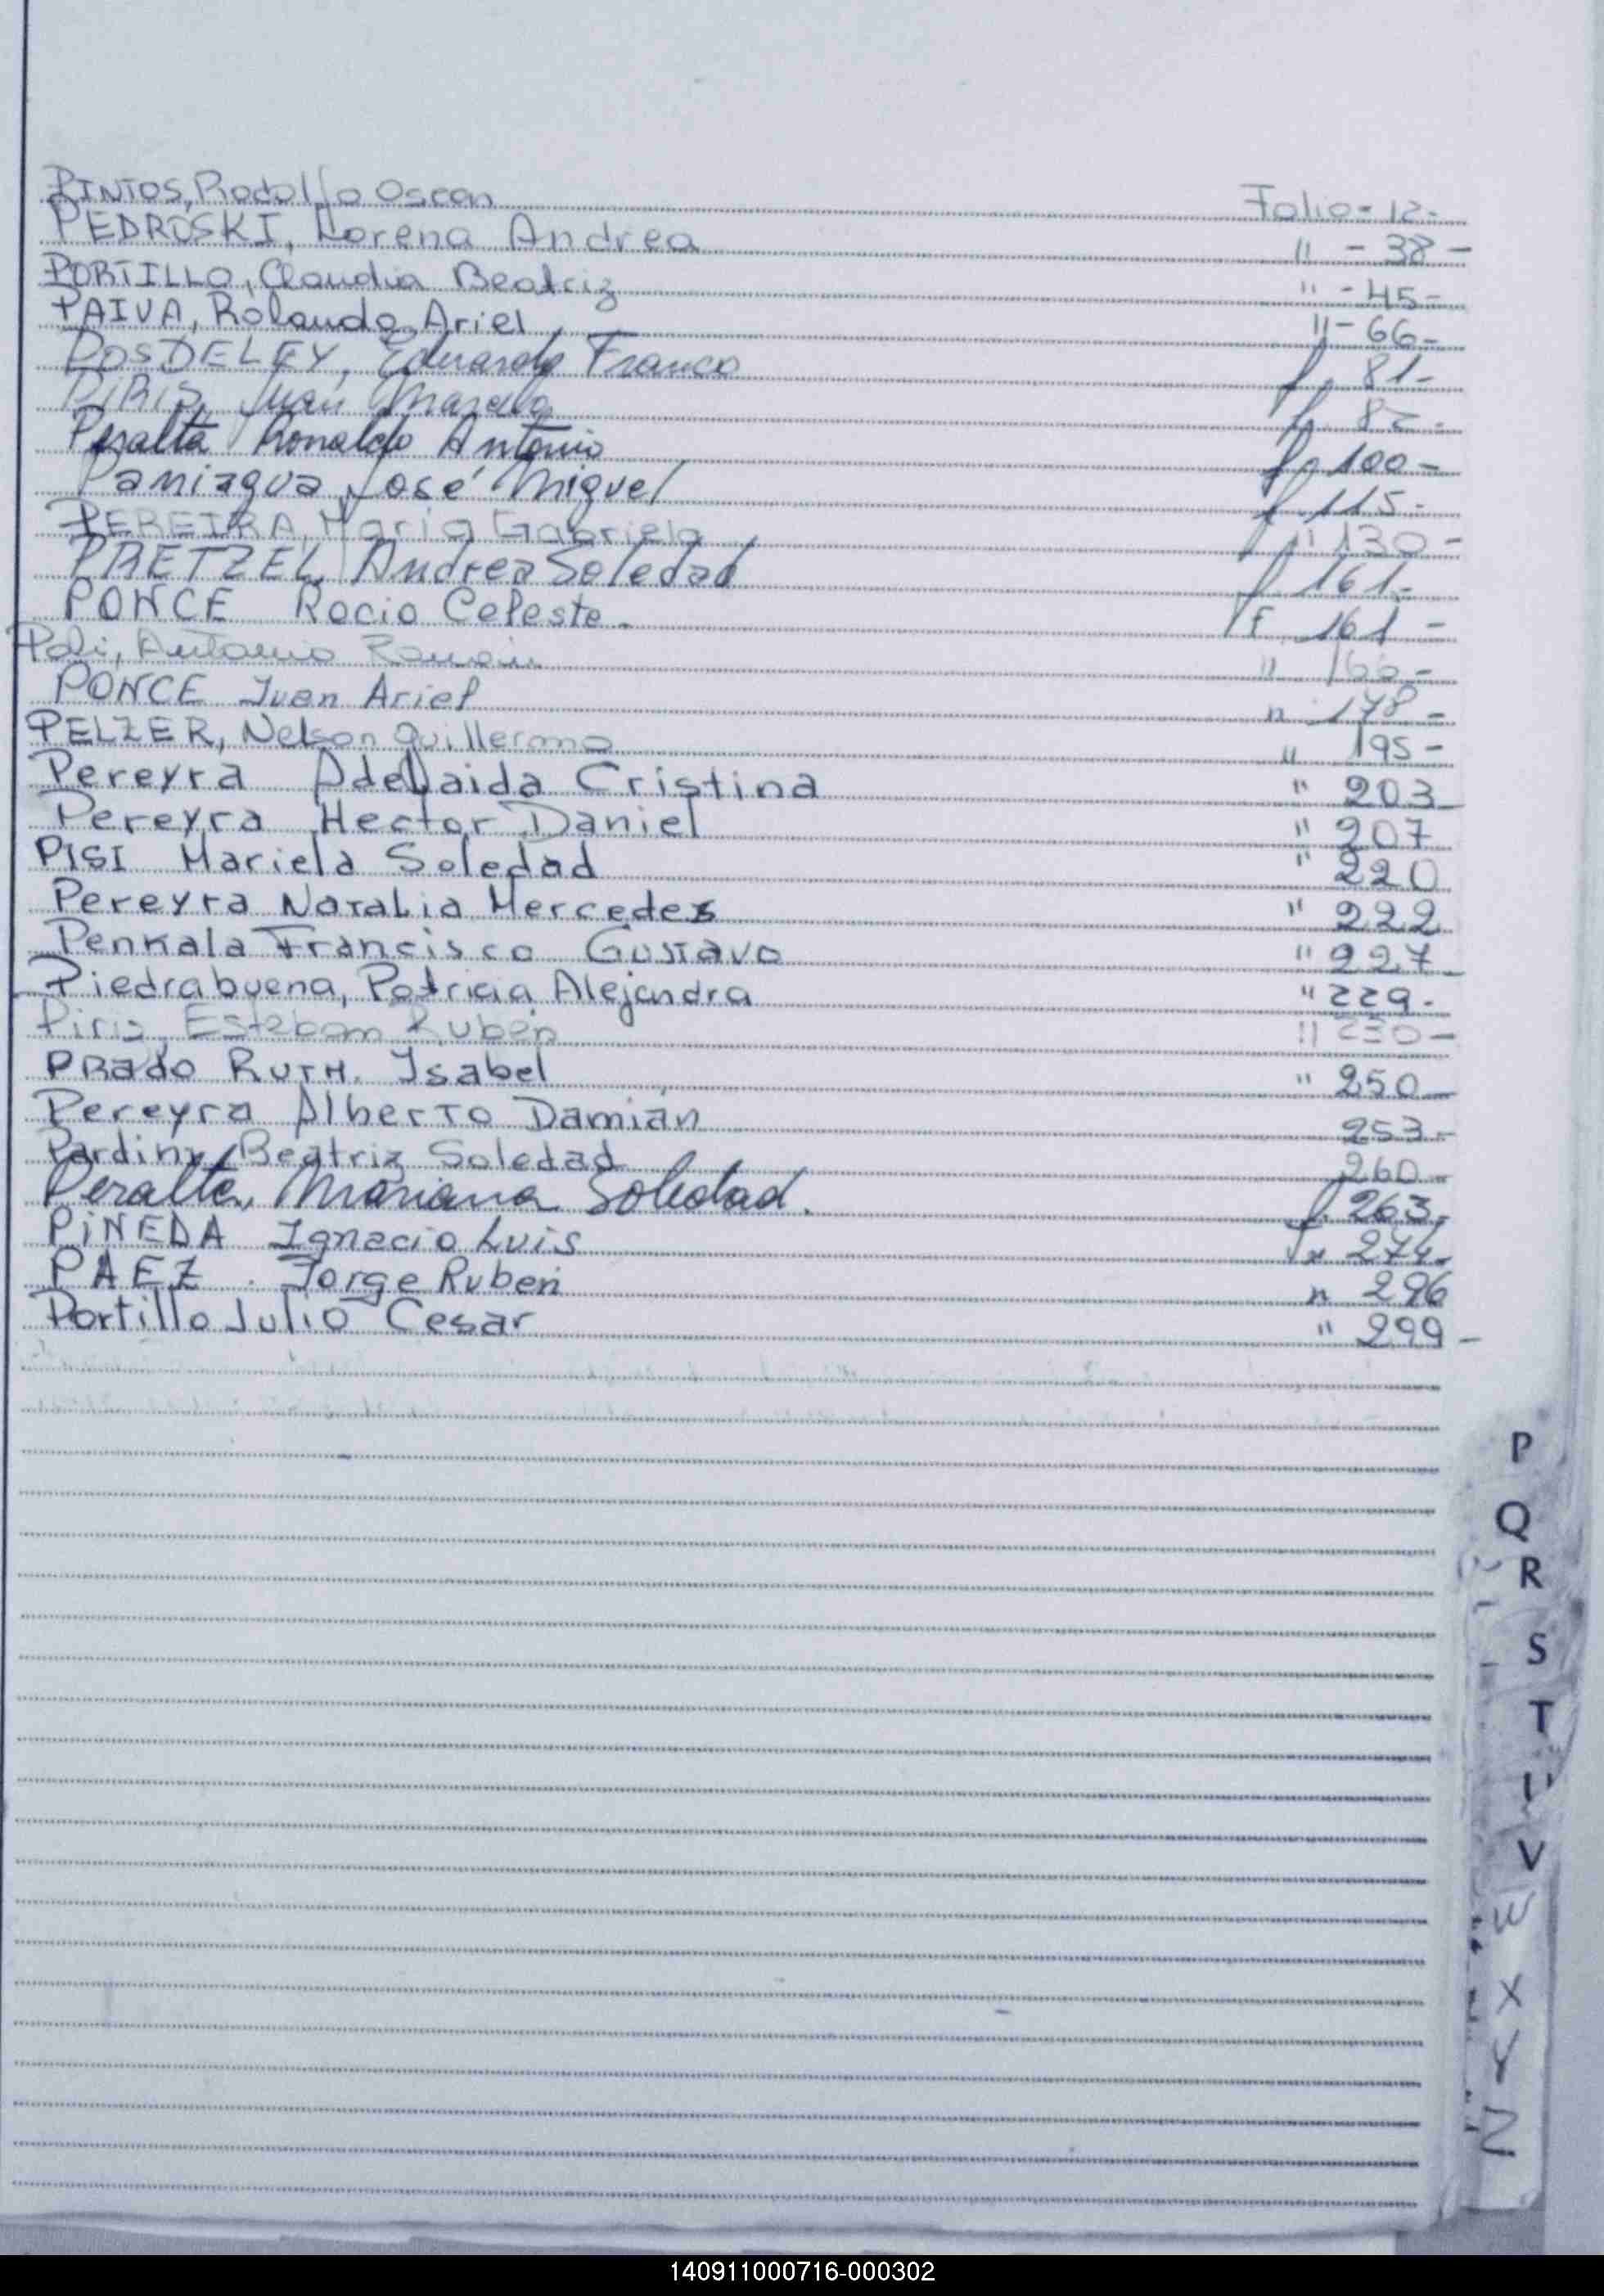 PINTOS, Rodolfo Oscar Folio - 12 -
PEDROSKI, Lorena Andrea " - 38 -
PORTILLO, Claudia Beatriz " - 45 -
PAIVA, Rolando Ariel " - 66 -
POSDELEY, Eduardo Franco f 81 -
PIRIS, Juan Marcelo f 82 -
Peralta Ronaldo Antonio f 100 -
Paniagua José Miguel f 115 -
PEREIRA, Maria Gabriela f 130 -
PRETZEL Andrea Soledad f 161 -
PONCE Rocio Celeste - F 161 -
Poli, Antonio Ramón " 166 -
PONCE Ivan Ariel n 178 -
PELZER, Nelson Guillermo " 195 -
Pereyra Adelaida Cristina " 203
Pereyra Hector Daniel " 207
PISI Mariela Soledad " 220
Pereyra Natalia Mercedes " 222
Penkala Francisco Gustavo " 227
Piedrabuena, Patricia Alejandra " 229 -
Piris, Esteban Rubén " 230 -
PRado RuTH. Isabel " 250
Pereyra Alberto Damián 253 -
Beatriz Soledad 260 -
Peralta, Mariana Soledad. f. 263,
PiNEDA Ignacio Luis 274 -
PAEZ . Jorge Ruben n 296
Portillo Julio Cesar " 299 -
P
Q
R
S
T
U
V
W
X
Y
Z
140911000716-000302